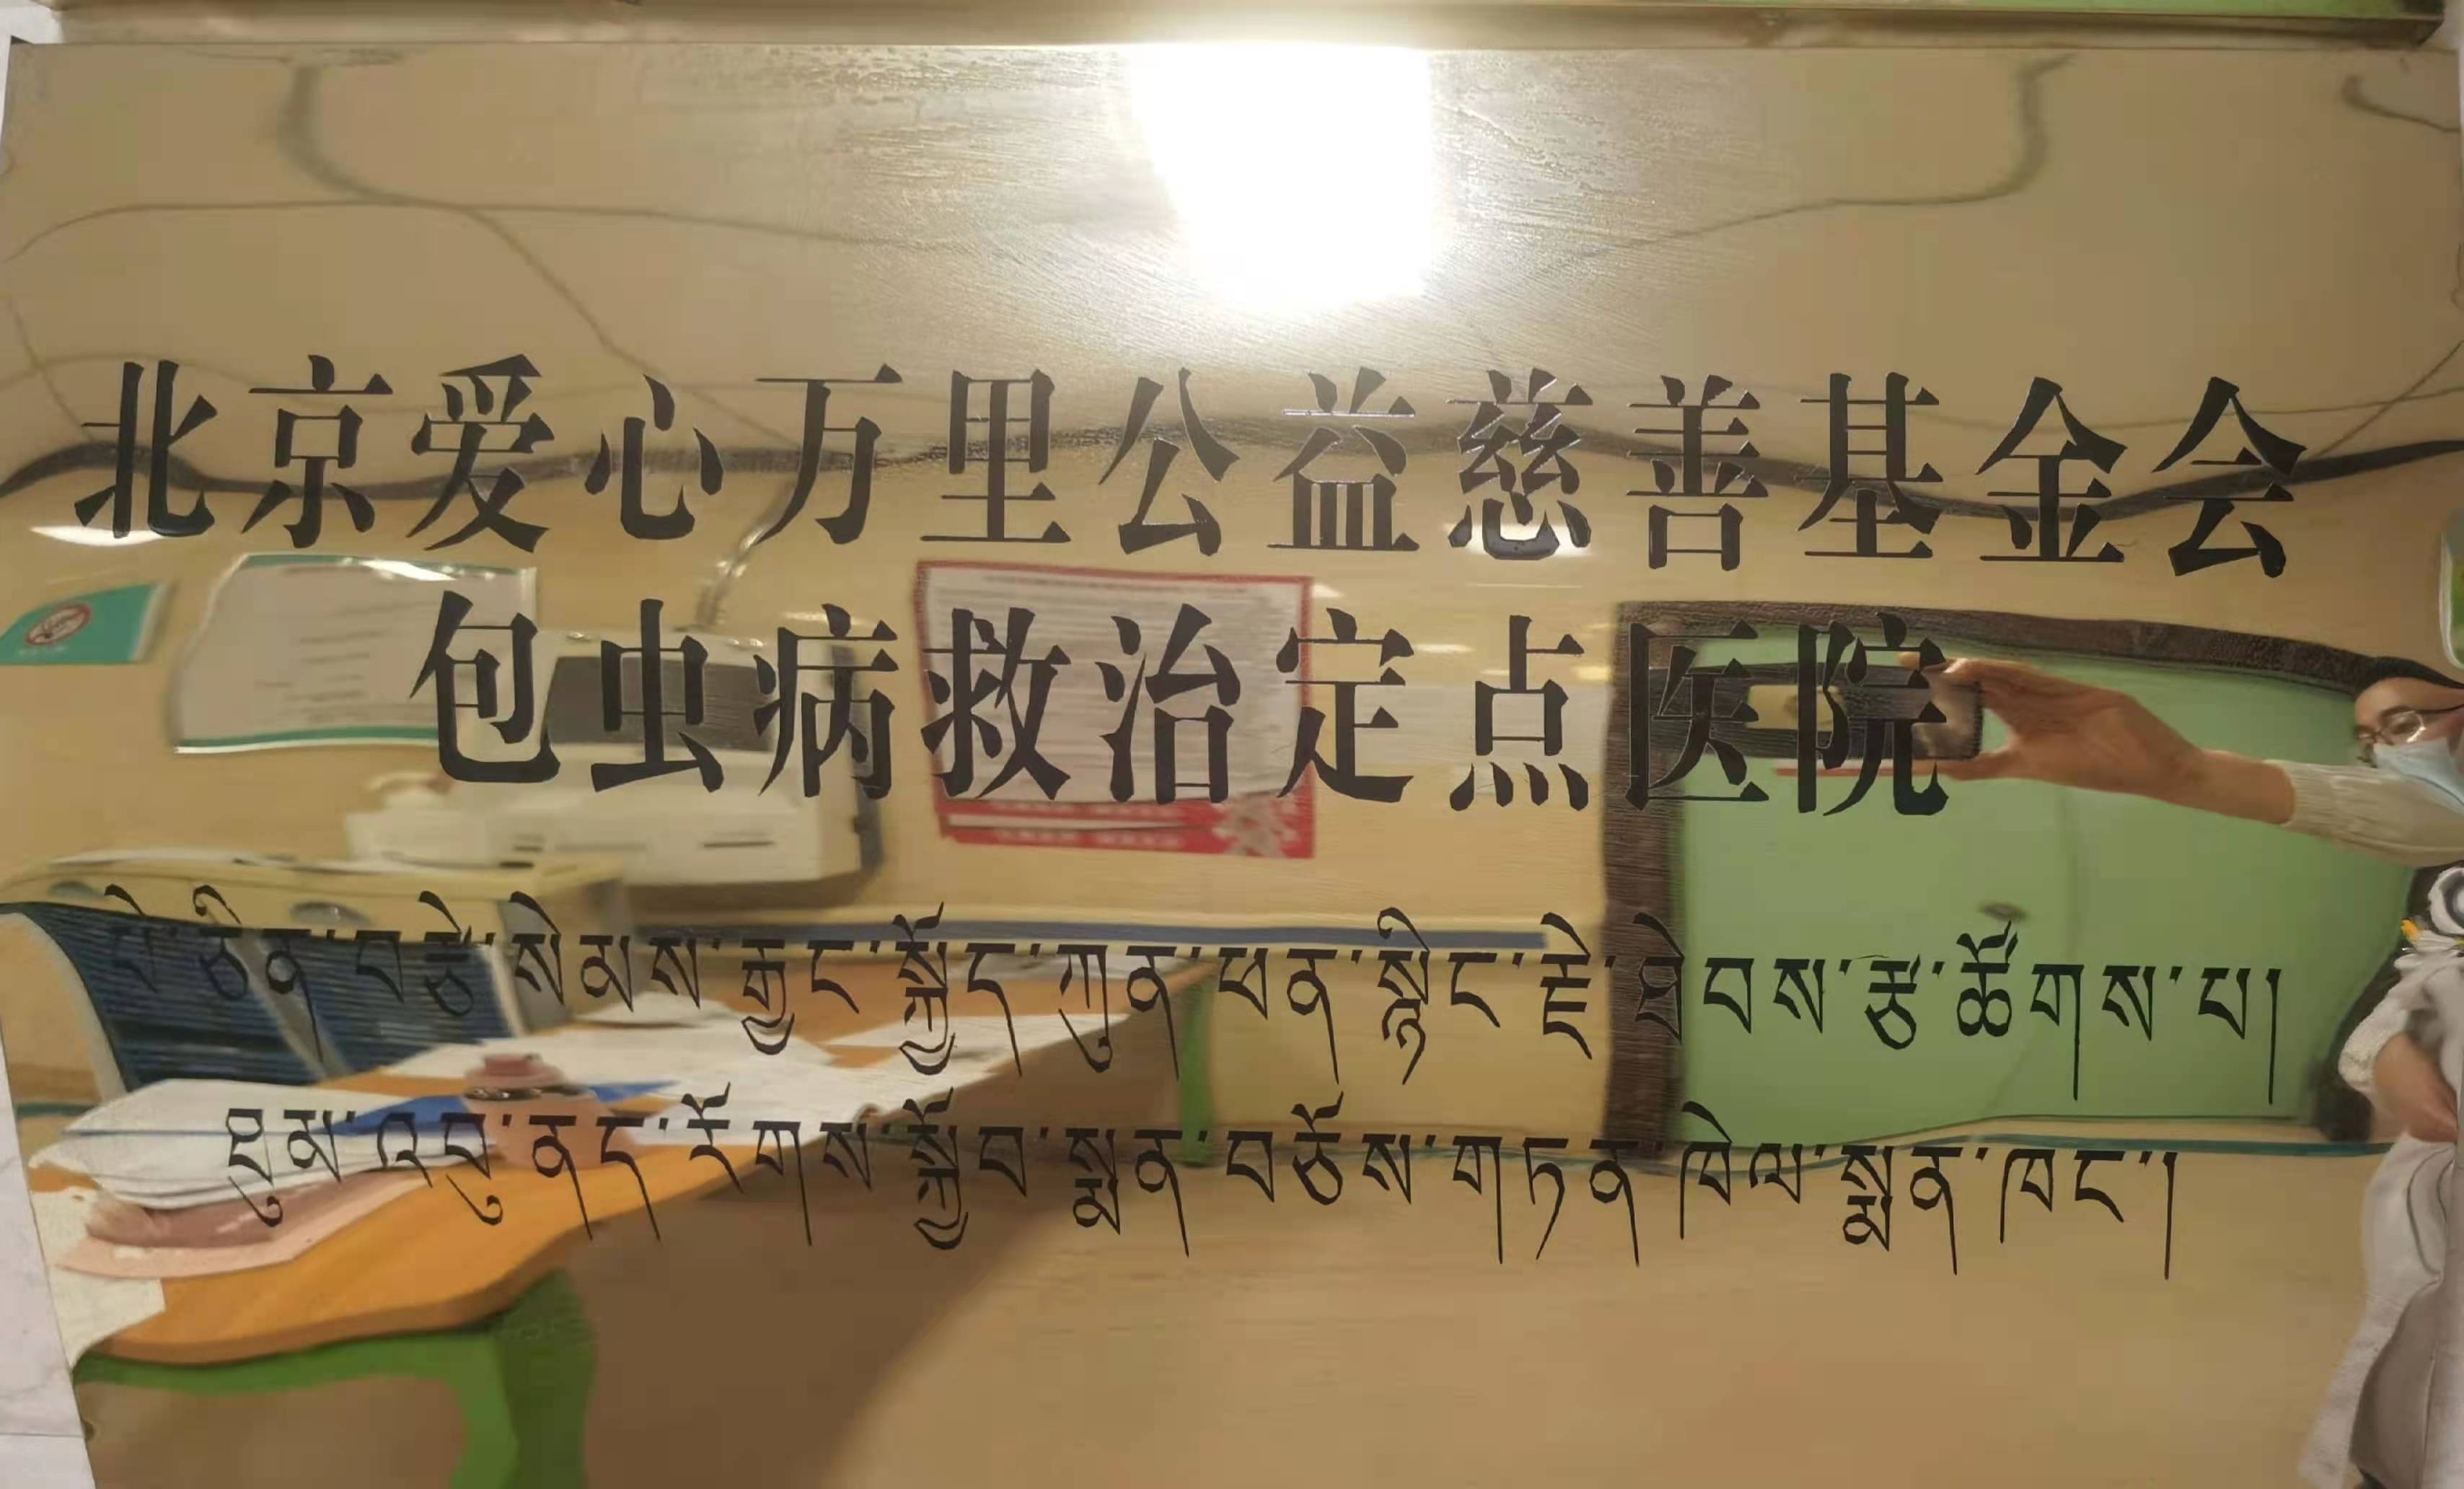 北京爱心万里公益慈善基金会
包虫病救治定点医院
པེ་ཅིན་བརྩེ་སེམས་རྒྱང་སྐྱོད་ཀུན་ཕན་སྙིང་རྗེ་ཐེབས་རྩ་ཚོགས་པ།
ཐུམ་འབུ་ནད་རོགས་སྐྱོབ་སྨན་བཅོས་གཏན་ཁེལ་སྨན་ཁང་།